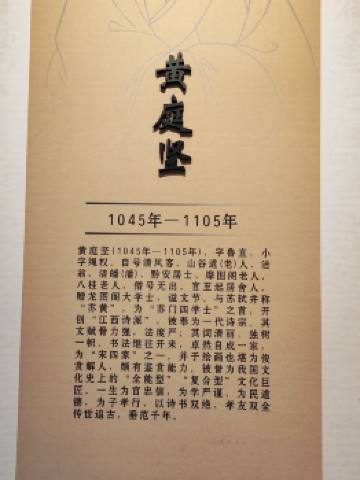 黄庭坚
1045年—1105年
黄庭坚(1045年—1105年)，字鲁直，小
字绳权，自号清风客、山谷道(老)人、涪
翁、涪皤(潘)、黔安居士、摩围阁老人、
八桂老人，僧号无出，官至起居舍人，
赠龙图阁大学士，谥文节。与苏轼并称
“苏黄”，为“苏门四学士”之首，开
创“江西诗派”，被奉为一代诗宗，其
文赋骨力强，法度严；其词清丽，独树
一帜，书法继往开来，卓然自成一家，
为“宋四家”之一，并于绘画也堪为俊
赏解人，颇有鉴赏能力，被誉为我国文
化史上的“全能型”“复合型”文化巨
匠。一生为官忠信，为学严谨，为民道
德，为子孝行，以诗书双绝，孝友双全
传世追古，垂范千年。